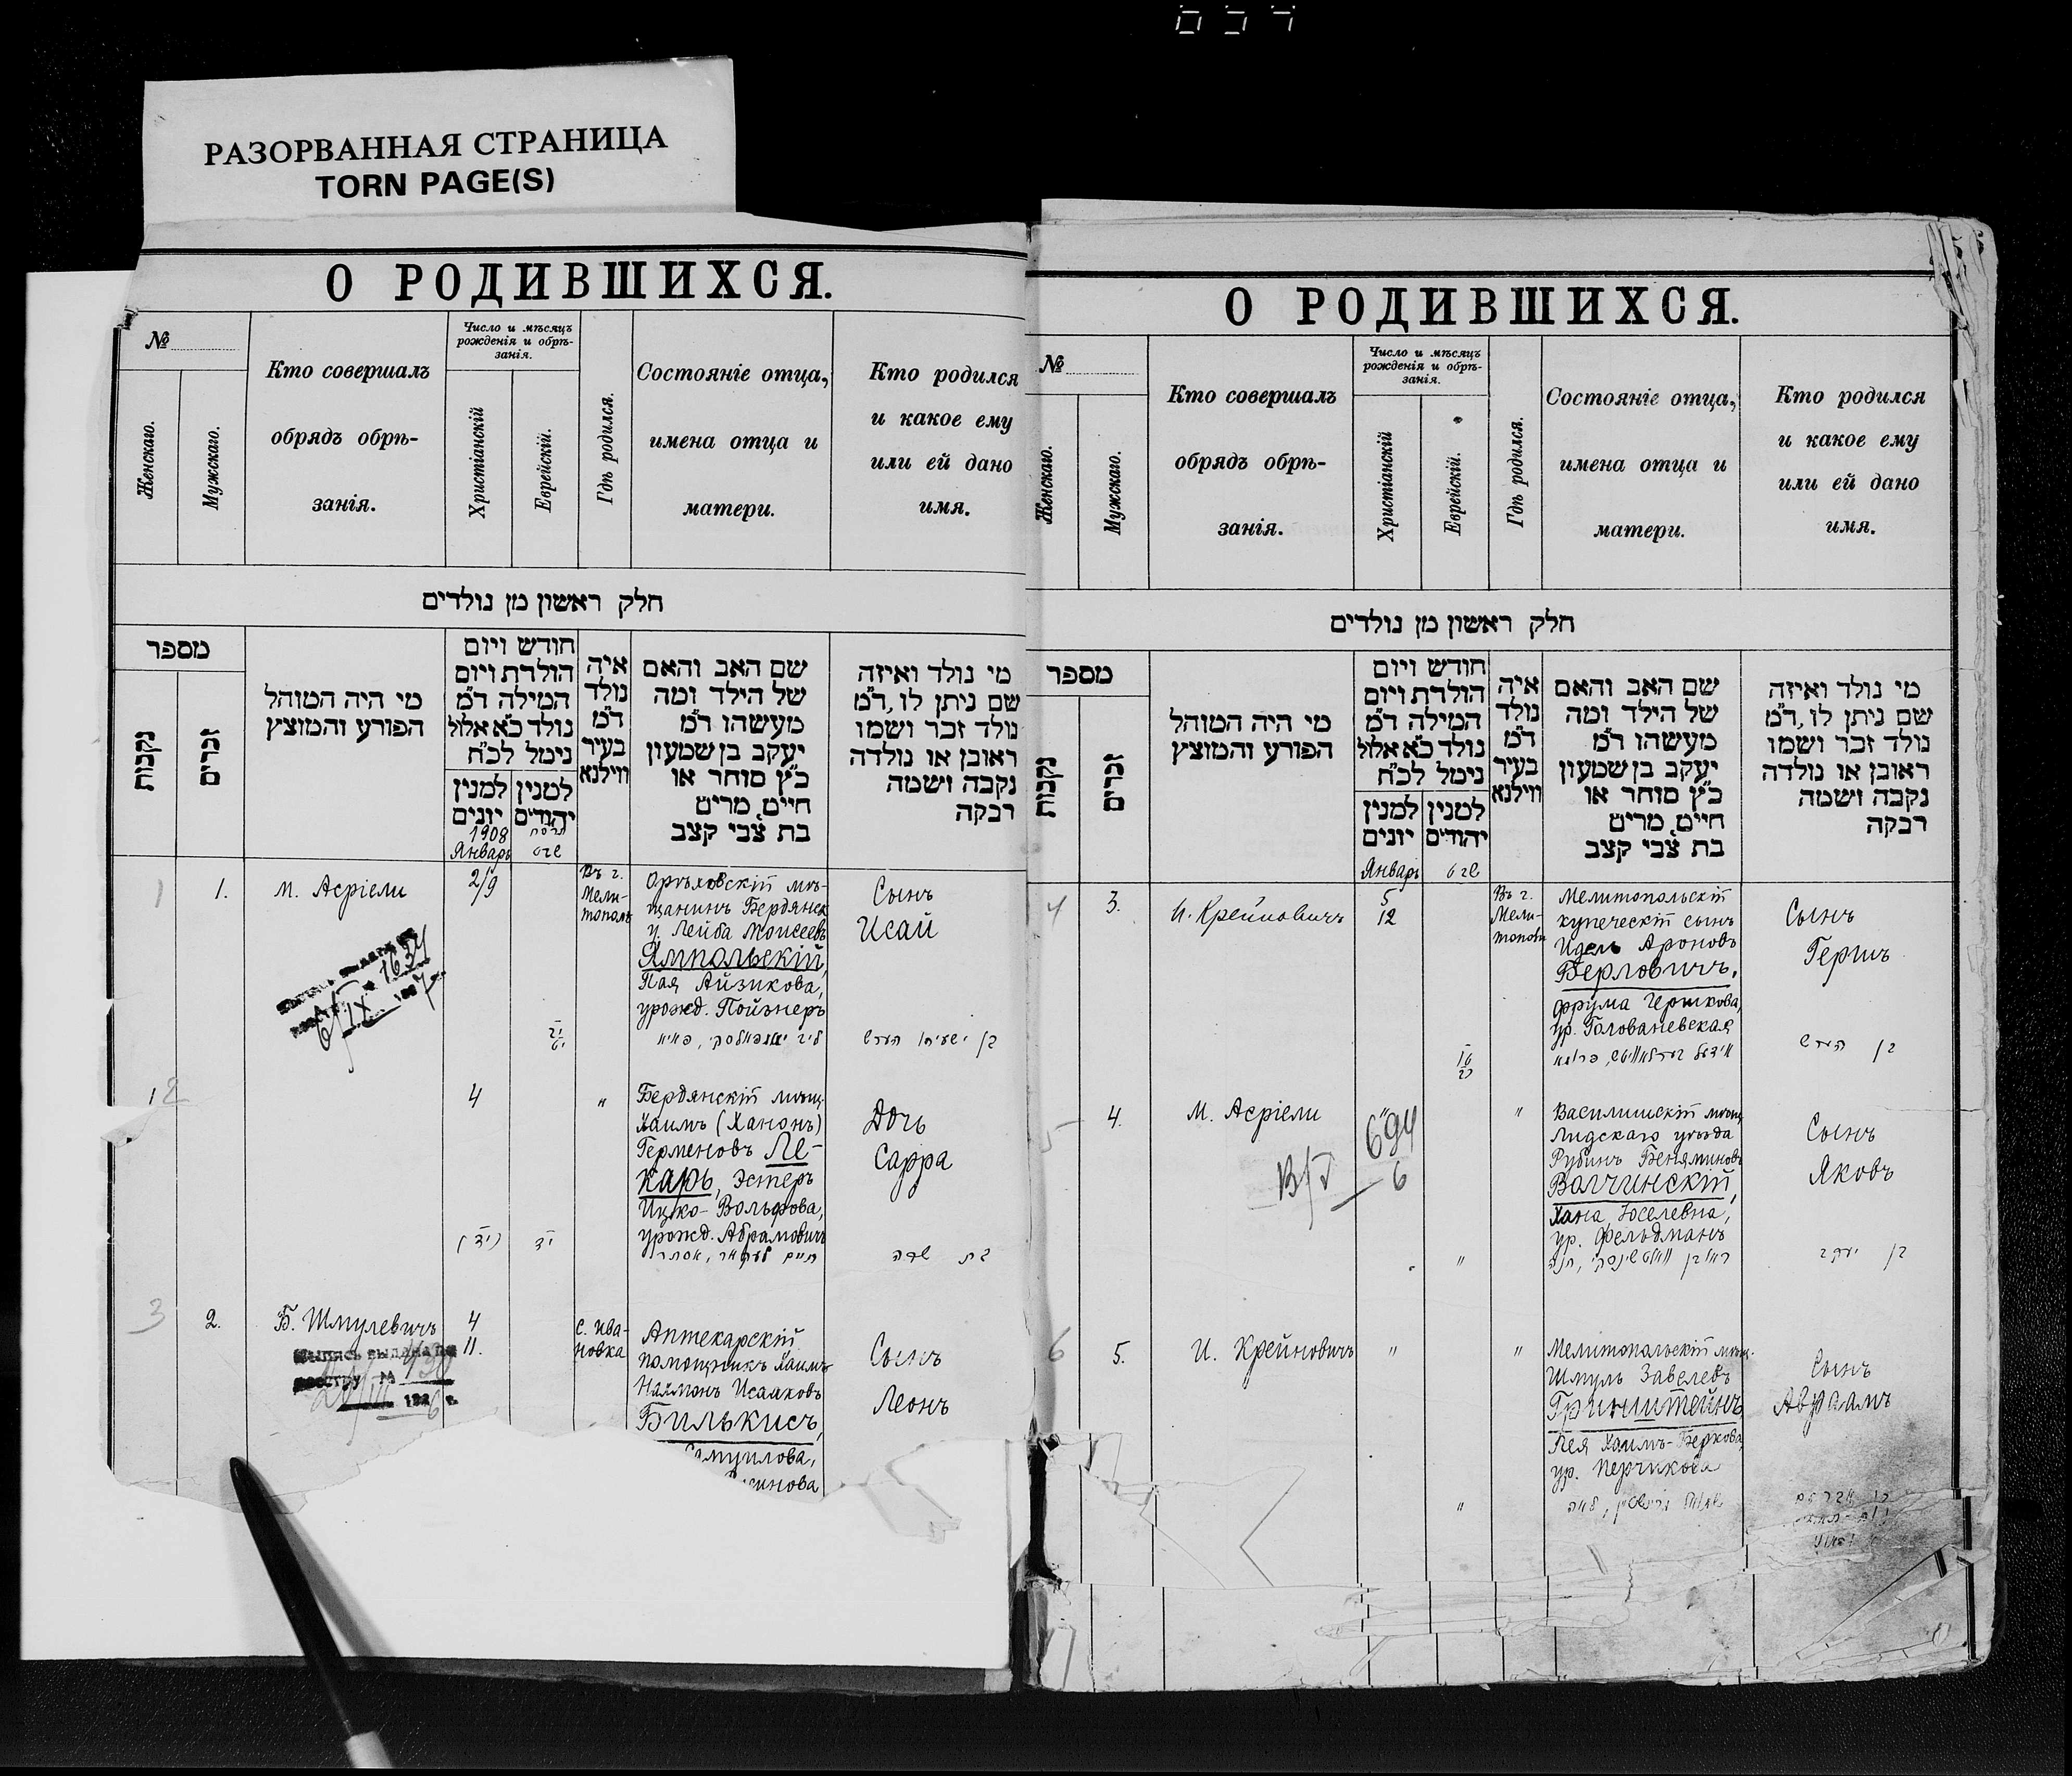 РАЗОРВАННАЯ СТРАНИЦА
TORN PAGE(S)
О РОДИВШИХСЯ.
№
Женскаго.
Мужскаго.
Кто совершалъ
обрядъ обрѣ-
занія.
Число и мѣсяцъ
рожденія и обрѣ-
занія.
Христіанскій
Еврейскій.
Гдѣ родился.
Состояніе отца,
имена отца и
матери.
Кто родился
и какое ему
или ей дано
имя.
חלק ראשון מן נולדים
מספר
נקבות
זכרים
מי היה המוהל
הפורע והמוצץ
חודש ויום
הולדת ויום
המילה ד"מ
נולד כ"א אלול
נימל לכ"ח
למנין
יונים
למנין
יהודים
איה
נולד
ד"מ
בעיר
ווילנא
שם האב והאם
של הילד ומה
מעשהו ד"מ
יעקב בן שמעון
כ"ץ סוחר או
חיים, מרים
בת צבי קצב
מי נולד ואיזה
שם ניתן לו, ד"מ
נולד זכר ושמו
ראובן או נולדה
נקבה ושמה
רבקה
1908
Январь
1
1.
М. Асріели
2/9
Въ г.
Мели-
тополѣ
Орѣховскій мѣ-
щанинъ Бердянск
у. Лейба Моисеевъ
Ямпольскій,
Пая Айзикова,
урожд. Пойзнеръ
Сынъ
Исай
1634
2
4
"
Бердянскій мѣщ.
Хаимъ (Ханонъ)
Герменовъ Ле-
карь, Эстеръ
Ицко-Вольфова,
урожд. Абрамовичъ
Дочь
Сарра
בת שרה
3
2.
Б. Шмулевичъ
4
11.
с. Ива-
новка
Аптекарскій
помощникъ Хаимъ
Найманъ Исааковъ
Билькисъ,
Самуилова,
Сынъ
Леонъ
выпись выдана по
реестру №
О РОДИВШИХСЯ.
№
Женскаго.
Мужскаго.
Кто совершалъ
обрядъ обрѣ-
занія.
Число и мѣсяцъ
рожденія и обрѣ-
занія.
Христіанскій
Еврейскій.
Гдѣ родился.
Состояніе отца,
имена отца и
матери.
Кто родился
и какое ему
или ей дано
имя.
חלק ראשון מן נולדים
מספר
נקבות
זכרים
מי היה המוהל
הפורע והמוצץ
חודש ויום
הולדת ויום
המילה ד"מ
נולד כ"א אלול
נימל לכ"ח
למנין
יונים
למנין
יהודים
איה
נולד
ד"מ
בעיר
ווילנא
שם האב והאם
של הילד ומה
מעשהו ד"מ
יעקב בן שמעון
כ"ץ סוחר או
חיים, מרים
בת צבי קצב
מי נולד ואיזה
שם ניתן לו, ד"מ
נולד זכר ושמו
ראובן או נולדה
נקבה ושמה
רבקה
Январь
4
3.
И. Крейновичъ
5
12
Въ г.
Мели-
тополѣ
Мелитопольскій
купеческій сынъ
Идель Ароновъ
Берловичъ,
Фрума Гершкова,
ур. Голованевская
Сынъ
Гершъ
בן הירש
5
4.
М. Асріели
"
694
6
"
Василишскій мѣщ.
Лидскаго уѣзда
Рубинъ Беняминовъ
Волчинскій,
Хана Іоселевна,
ур. Фельдманъ
Сынъ
Яковъ
"
בן יעקב
6
5.
И. Крейновичъ
"
"
Мелитопольскій мѣщ.
Шмуль Завелевъ
Гринштейнъ,
Лея Хаимъ-Беркова,
ур. Перчикова
Сынъ
Авраамъ
"